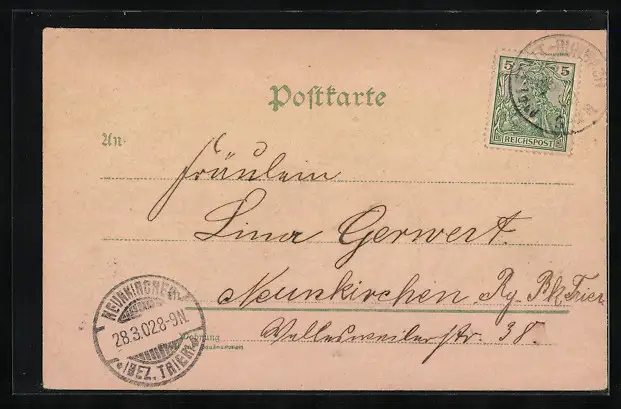 Postkarte
5 5
REICHSPOST
An
Fräulein
Lina Gerwert.
Neunkirchen, Rg. Bk. Trier
Wellesweilerstr. 38.
Wohnung
NEUNKIRCHEN
28.3.02.8-9N.
*(BEZ. TRIER)